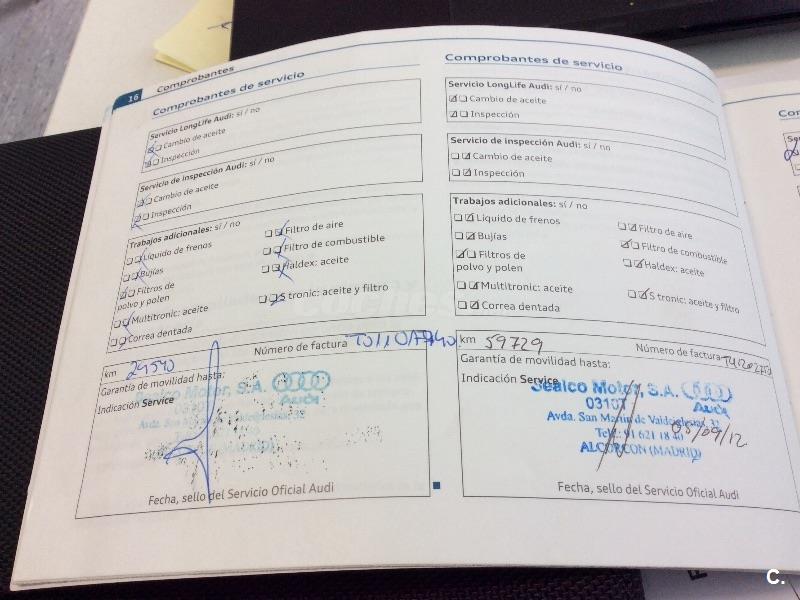 16 Comprobantes
Comprobantes de servicio
Servicio LongLife Audi: sí / no
Cambio de aceite
Inspección
Servicio de inspección Audi: sí / no
Cambio de aceite
Inspección
Trabajos adicionales: sí / no
Líquido de frenos
Filtro de aire
Bujías
Filtro de combustible
Filtros de
polvo y polen
Haldex: aceite
Multitronic: aceite
S tronic: aceite y filtro
Correa dentada
km 29540
Número de factura
Garantía de movilidad hasta:
Indicación Service
Sealco Motor, S.A.
Audi
Avda. San Martín de Valdeiglesias, 32
Fecha, sello del Servicio Oficial Audi
Comprobantes de servicio
Servicio LongLife Audi: sí / no
Cambio de aceite
Inspección
Servicio de inspección Audi: sí / no
Cambio de aceite
Inspección
Trabajos adicionales: sí / no
Líquido de frenos
Filtro de aire
Bujías
Filtro de combustible
Filtros de
polvo y polen
Haldex: aceite
Multitronic: aceite
S tronic: aceite y filtro
Correa dentada
km 59729
Número de factura
Garantía de movilidad hasta:
Indicación Service
Sealco Motor, S.A.
03107
Audi
Avda. San Martín de Valdeiglesias, 32
Telf.: 91 621 18 40
05/09/12
ALCORCON (MADRID)
Fecha, sello del Servicio Oficial Audi
C.